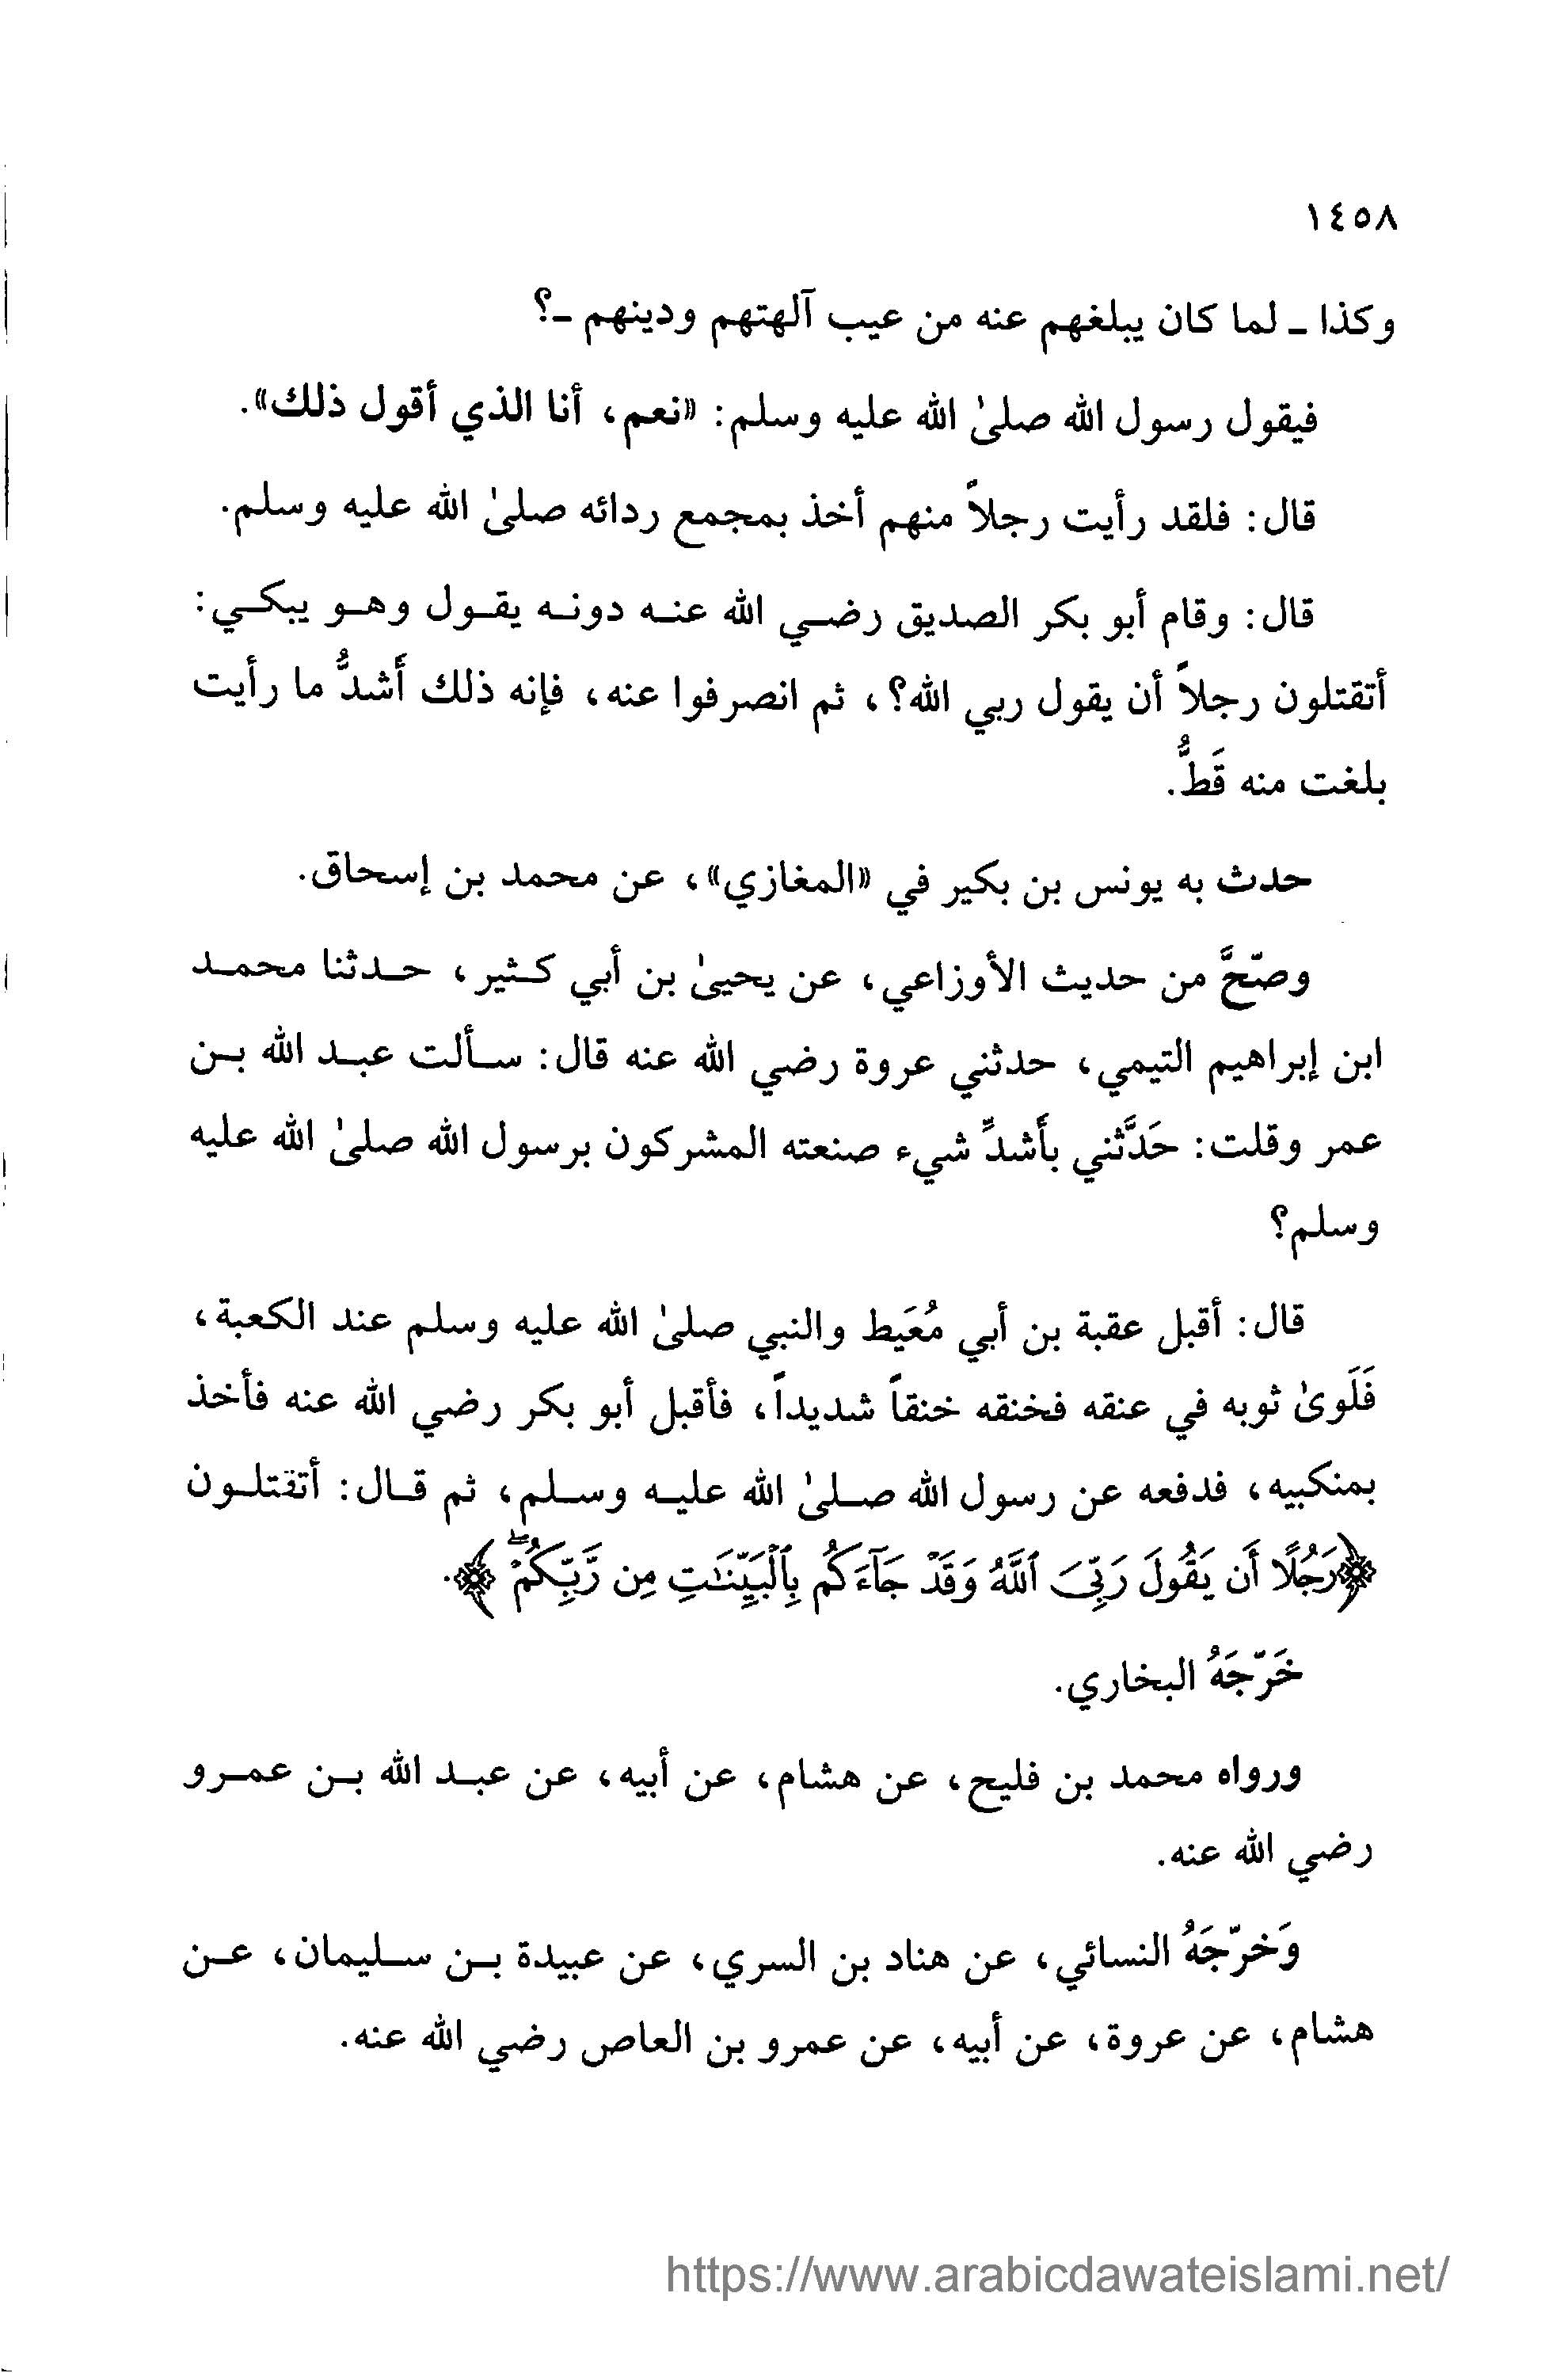 ١٤٥٨
وكذا ـ لما كان يبلغهم عنه من عيب آلهتهم ودينهم ـ؟
فيقول رسول الله صلىٰ الله عليه وسلم: «نعم، أنا الذي أقول ذلك».
قال: فلقد رأيت رجلاً منهم أخذ بمجمع ردائه صلىٰ الله عليه وسلم.
قال: وقام أبو بكر الصديق رضي الله عنه دونه يقول وهو يبكي:
أتقتلون رجلاً أن يقول ربي الله؟، ثم انصرفوا عنه، فإنه ذلك أَشدُّ ما رأيت
بلغت منه قَطُّ.
حدث به يونس بن بكير في «المغازي»، عن محمد بن إسحاق.
وصَحَّ من حديث الأوزاعي، عن يحيىٰ بن أبي كثير، حدثنا محمد
ابن إبراهيم التيمي، حدثني عروة رضي الله عنه قال: سألت عبد الله بن
عمر وقلت: حَدَّثني بأشدِّ شيء صنعته المشركون برسول الله صلىٰ الله عليه
وسلم؟
قال: أقبل عقبة بن أبي مُعَيط والنبي صلىٰ الله عليه وسلم عند الكعبة،
فَلَوىٰ ثوبه في عنقه فخنقه خنقاً شديداً، فأقبل أبو بكر رضي الله عنه فأخذ
بمنكبيه، فدفعه عن رسول الله صلىٰ الله عليه وسلم، ثم قال: أتقتلون
﴿رَجُلًا أَن يَقُولَ رَبِّىَ ٱللَّهُ وَقَدْ جَآءَكُم بِٱلْبَيِّنَٰتِ مِن رَّبِّكُمْ ۖ﴾.
خَرّجَهُ البخاري.
ورواه محمد بن فليح، عن هشام، عن أبيه، عن عبد الله بن عمرو
رضي الله عنه.
وَخَرّجَهُ النسائي، عن هناد بن السري، عن عبيدة بن سليمان، عن
هشام، عن عروة، عن أبيه، عن عمرو بن العاص رضي الله عنه.
https://www.arabicdawateislami.net/